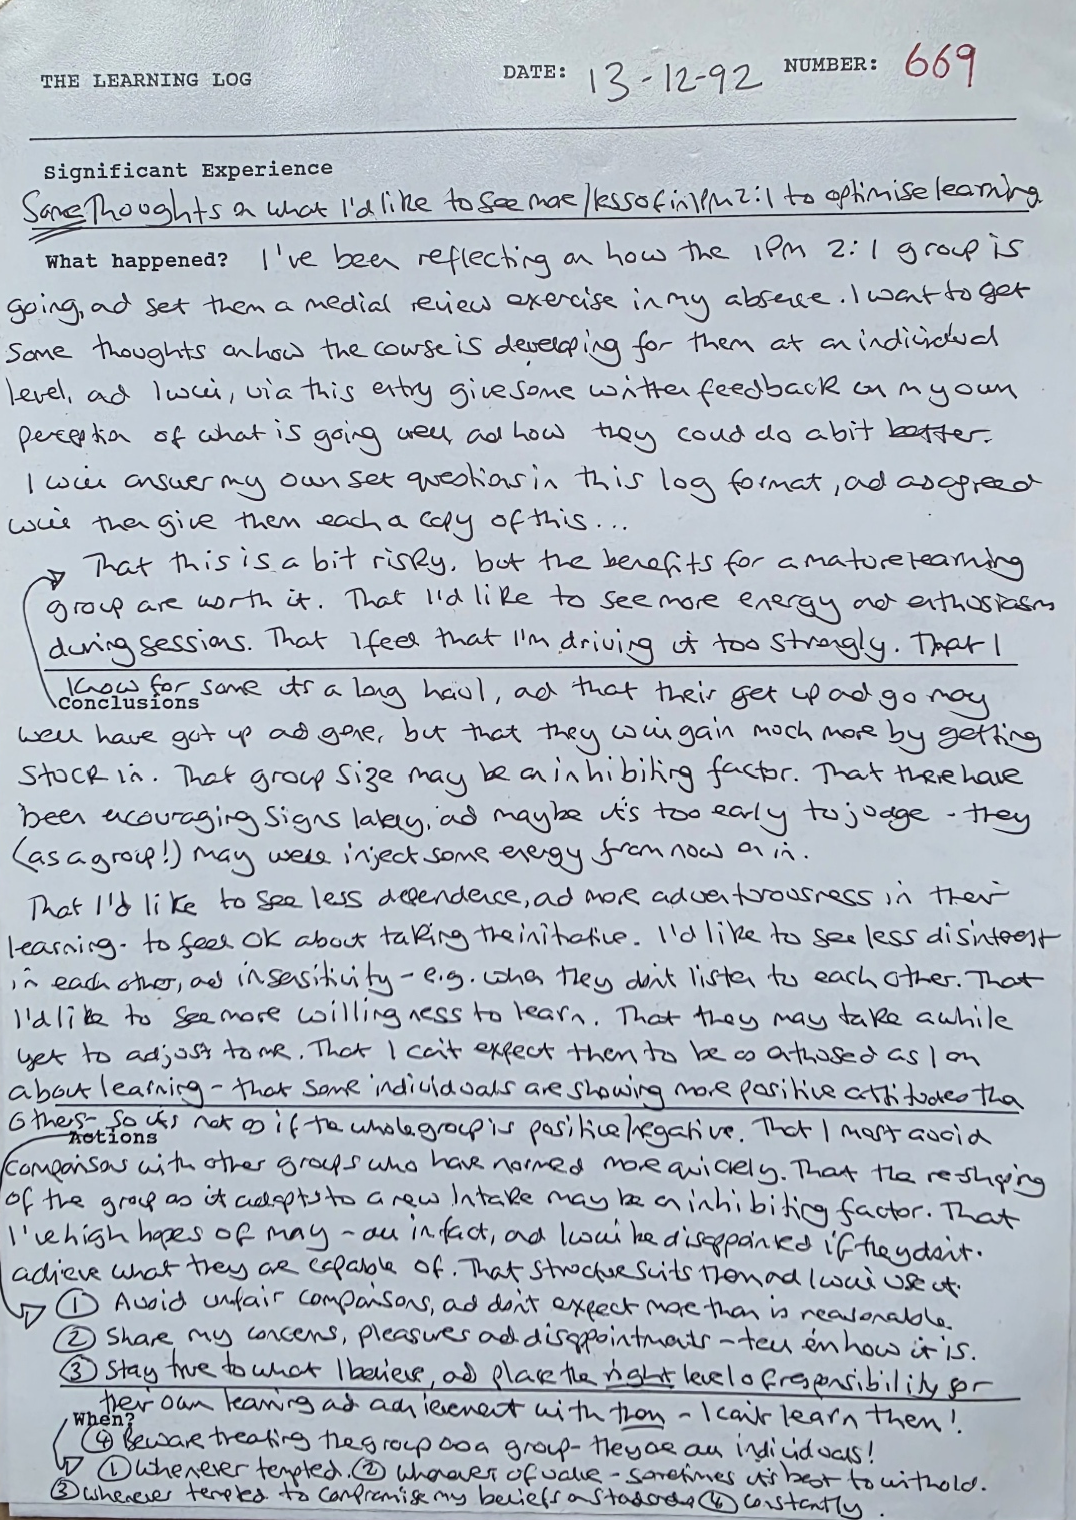 THE LEARNING LOG DATE: 13-12-92 NUMBER: 669
Significant Experience
Some Thoughts on what I'd like to see more/less of in IPM 2:1 to optimise learning
What happened? I've been reflecting on how the IPM 2:1 group is
going, and set them a medial review exercise in my absence. I want to get
some thoughts on how the course is developing for them at an individual
level, and I will, via this entry give some written feedback on my own
perception of what is going well, and how they could do a bit better.
I will answer my own set questions in this log format, and as agreed
will then give them each a copy of this...
That this is a bit risky, but the benefits for a mature learning
group are worth it. That I'd like to see more energy and enthusiasm
during sessions. That I feel that I'm driving it too strongly. That I
know for some its a long haul, and that their get up and go may
Conclusions
well have got up and gone, but that they will gain much more by getting
stuck in. That group size may be an inhibiting factor. That there have
been encouraging signs lately, and maybe it's too early to judge - they
(as a group!) may well inject some energy from now on in.
That I'd like to see less dependence, and more adventurousness in their
learning - to feel OK about taking the initiative. I'd like to see less disinterest
in each other, and insensitivity - e.g. when they don't listen to each other. That
I'd like to see more willingness to learn. That they may take awhile
yet to adjust to me. That I can't expect them to be as enthused as I am
about learning - that some individuals are showing more positive attitudes than
others - so its not as if the whole group is positive/negative. That I must avoid
Actions
comparisons with other groups who have normed more quickly. That the re-shaping
of the group as it adapts to a new intake may be an inhibiting factor. That
I've high hopes of many - all in fact, and I will be disappointed if they don't
achieve what they are capable of. That structure suits them and I will use it.
① Avoid unfair comparisons, and don't expect more than is reasonable.
② Share my concerns, pleasures and disappointments - tell 'em how it is.
③ Stay true to what I believe, and place the right level of responsibility for
their own learning and achievement with them - I can't learn them!
When?
④ Beware treating the group as a group - they are all individuals!
① Whenever tempted. ② whenever of value - sometimes it's best to withold.
③ whenever tempted to compromise my beliefs or standards ④ constantly.